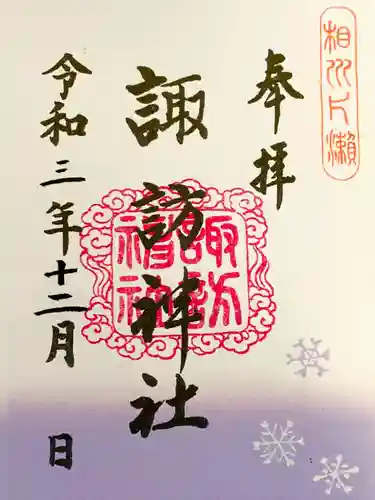 相州片瀬
奉拝
諏訪神社
諏訪
神社
令和三年十二月 日